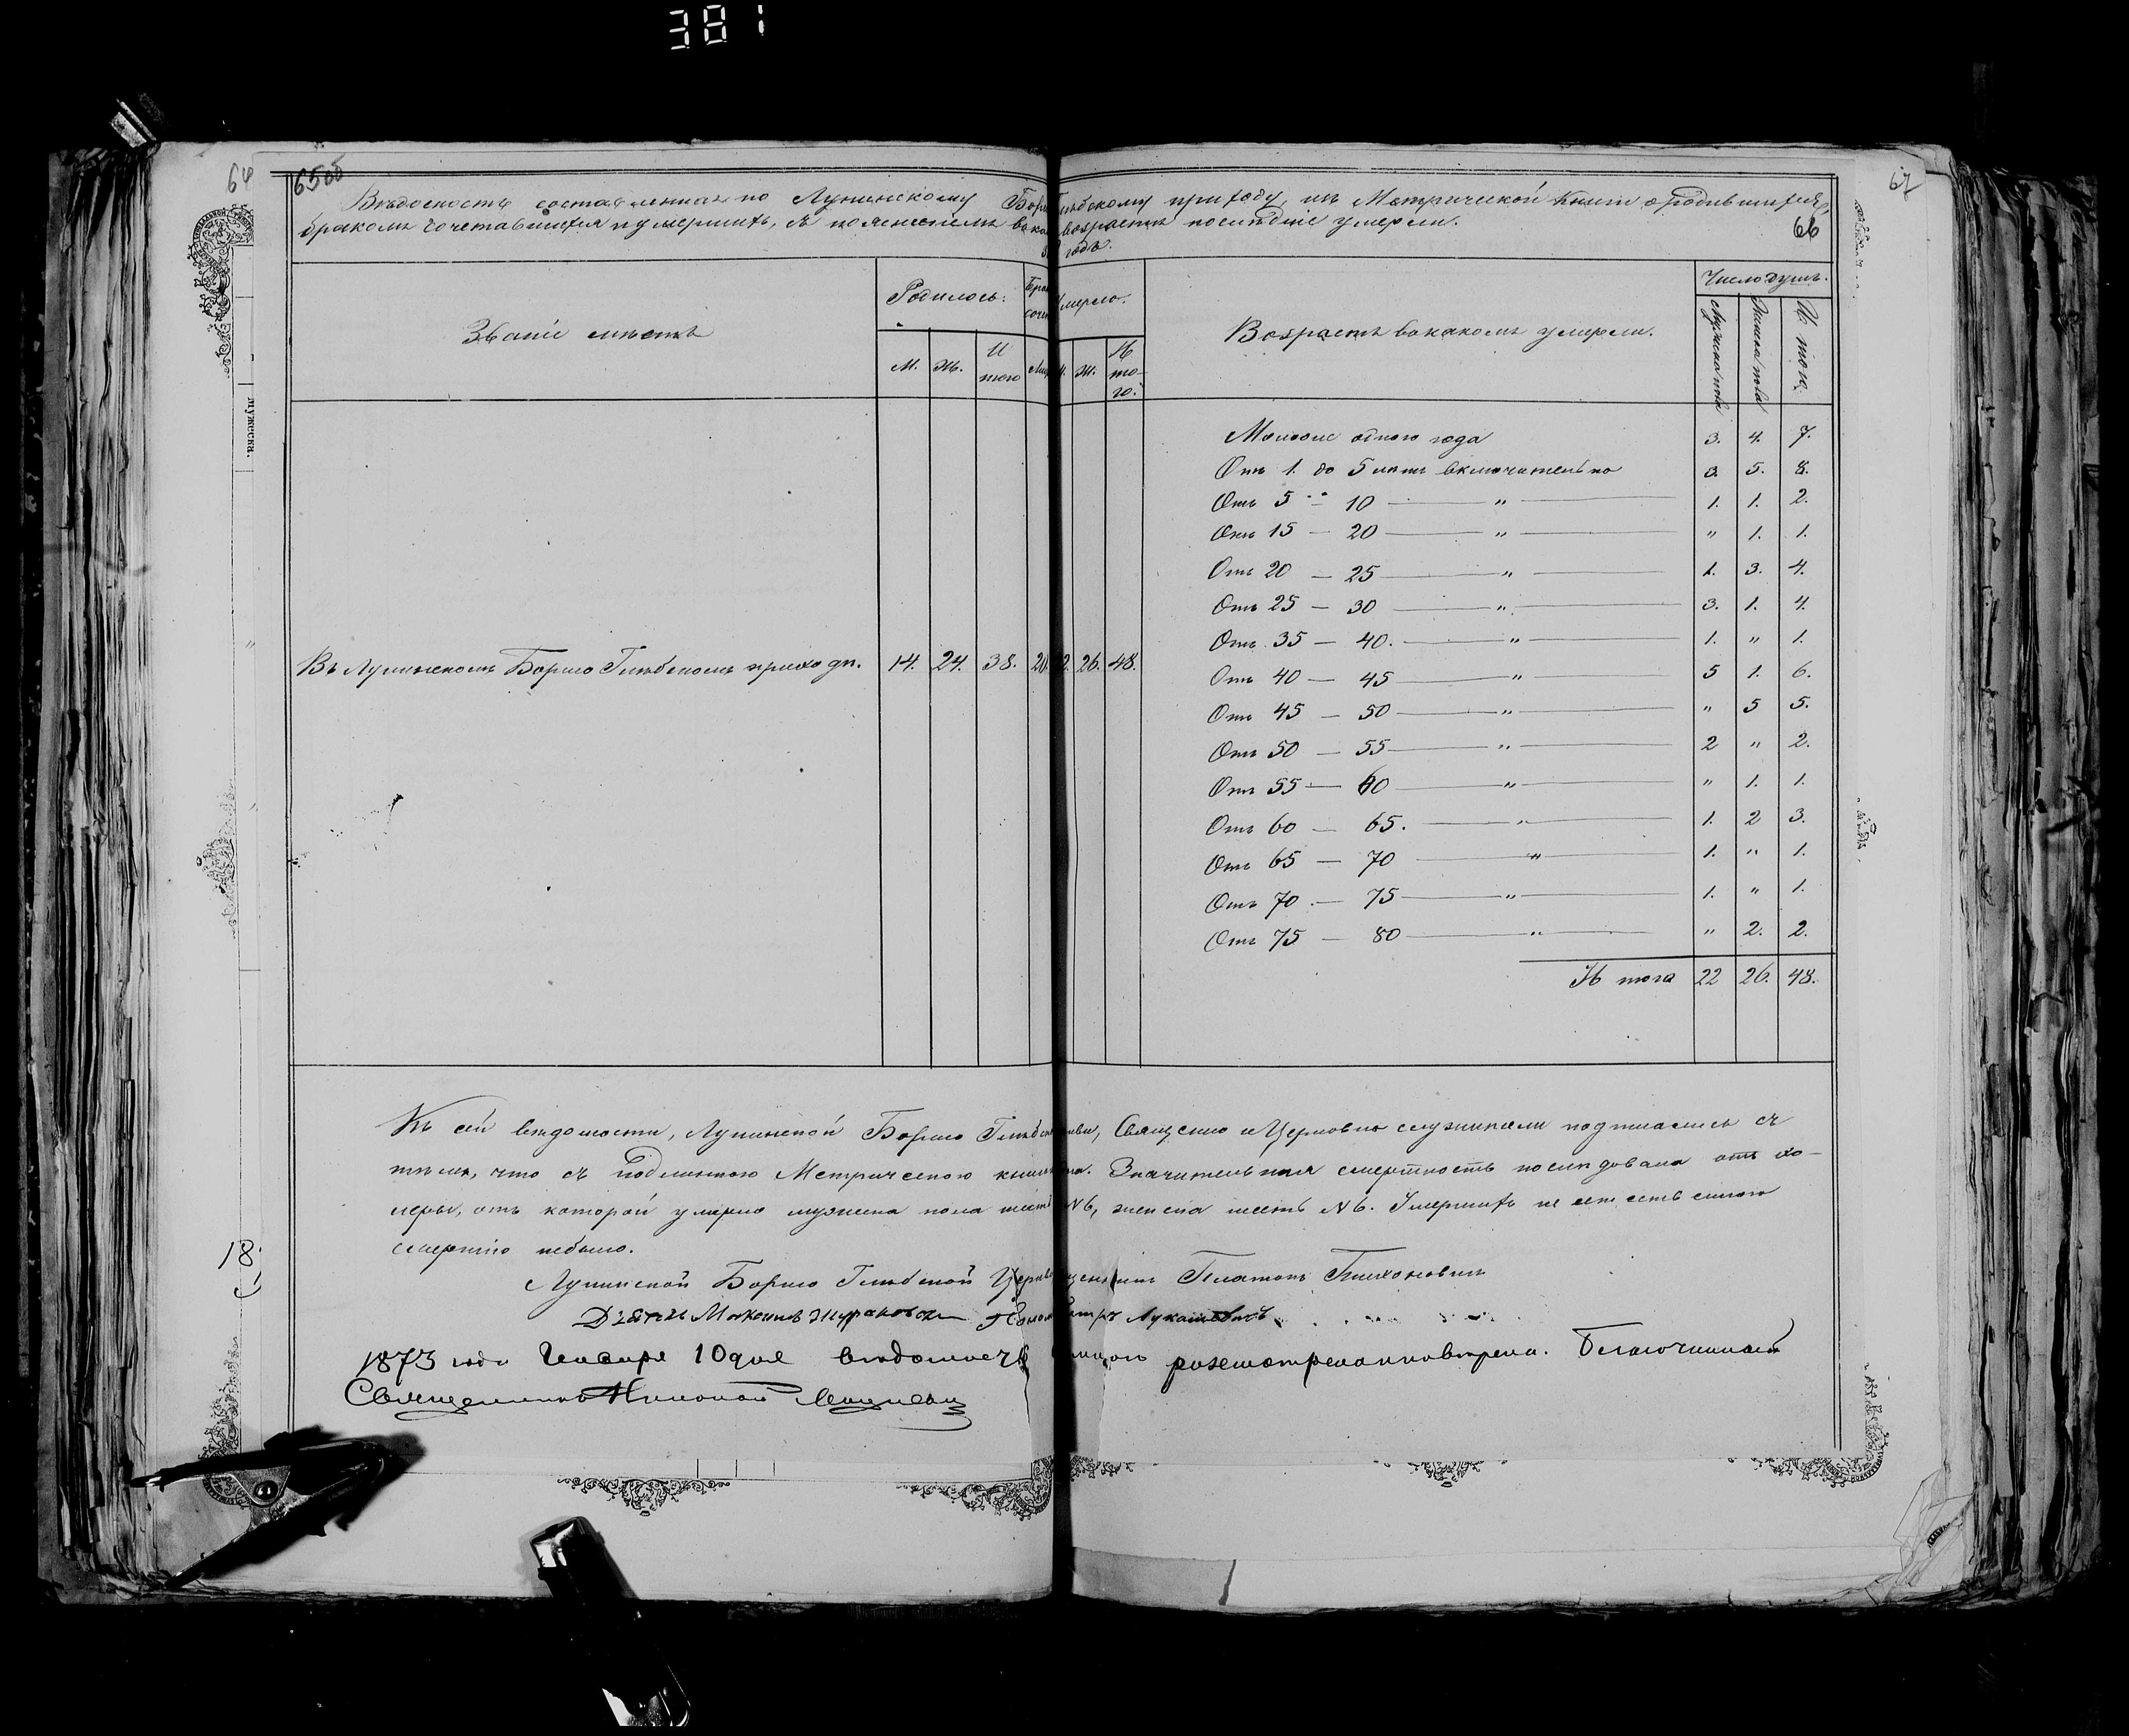 381
64
65об
67
66
Вѣдомость составленная по Лунинскому Бори Глѣбскому приходу, изъ Метрической книги о родившихся,
бракомъ сочетавшихся и умершихъ, съ поясненіемъ въ ка возрастѣ послѣдніе умерли.
годъ.
Званіе мѣстъ
Родилось.
Умерло.
Возрастъ въ какомъ умерли.
Число душъ.
М. Ж. И того
Ж. И то-го.
Мужеска пола
Женска пола
И того.
мужеска.
Моложе одного года 3. 4. 7.
Отъ 1. до 5 лѣтъ включительно 3. 5. 8.
Отъ 5 — 10 — " — 1. 1. 2.
Отъ 15 — 20 — " — " 1. 1.
Отъ 20 — 25 — " — 1. 3. 4.
Отъ 25 — 30 — " — 3. 1. 4.
Отъ 35 — 40. — " — 1. " 1.
Въ Лунинскомъ Борисо Глѣбскомъ приходѣ. 14. 24. 38. 20 2. 26. 48.
Отъ 40 — 45 — " — 5 1. 6.
Отъ 45 — 50 — " — " 5 5.
Отъ 50 — 55 — " — 2 " 2.
Отъ 55 — 60 — " — " 1. 1.
Отъ 60 — 65. — " — 1. 2 3.
Отъ 65 — 70 — " — 1. " 1.
Отъ 70 — 75 — " — 1. " 1.
Отъ 75 — 80 — " — " 2. 2.
И того 22 26. 48.
Къ сей вѣдомости, Лунинской Борисо Глѣбск Священно и Церковно служители подписались съ
тѣмъ, что съ подлинною Метрическою книгою Значительная смертность послѣдовала отъ хо-
леры, отъ которой умерло мужеска пола шесть №6, женска шесть №6. Умершихъ не естественною
смертію небыло.
18
Лунинской Борисо Глѣбской Церкви Платонъ Тихоновичъ
Дьячекъ Максимъ Жураковск Поном Петръ Лукашевичъ
1873 года Генваря 10 дня вѣдомость разсмотрена и повѣрена. Благочинный
Священникъ Николай